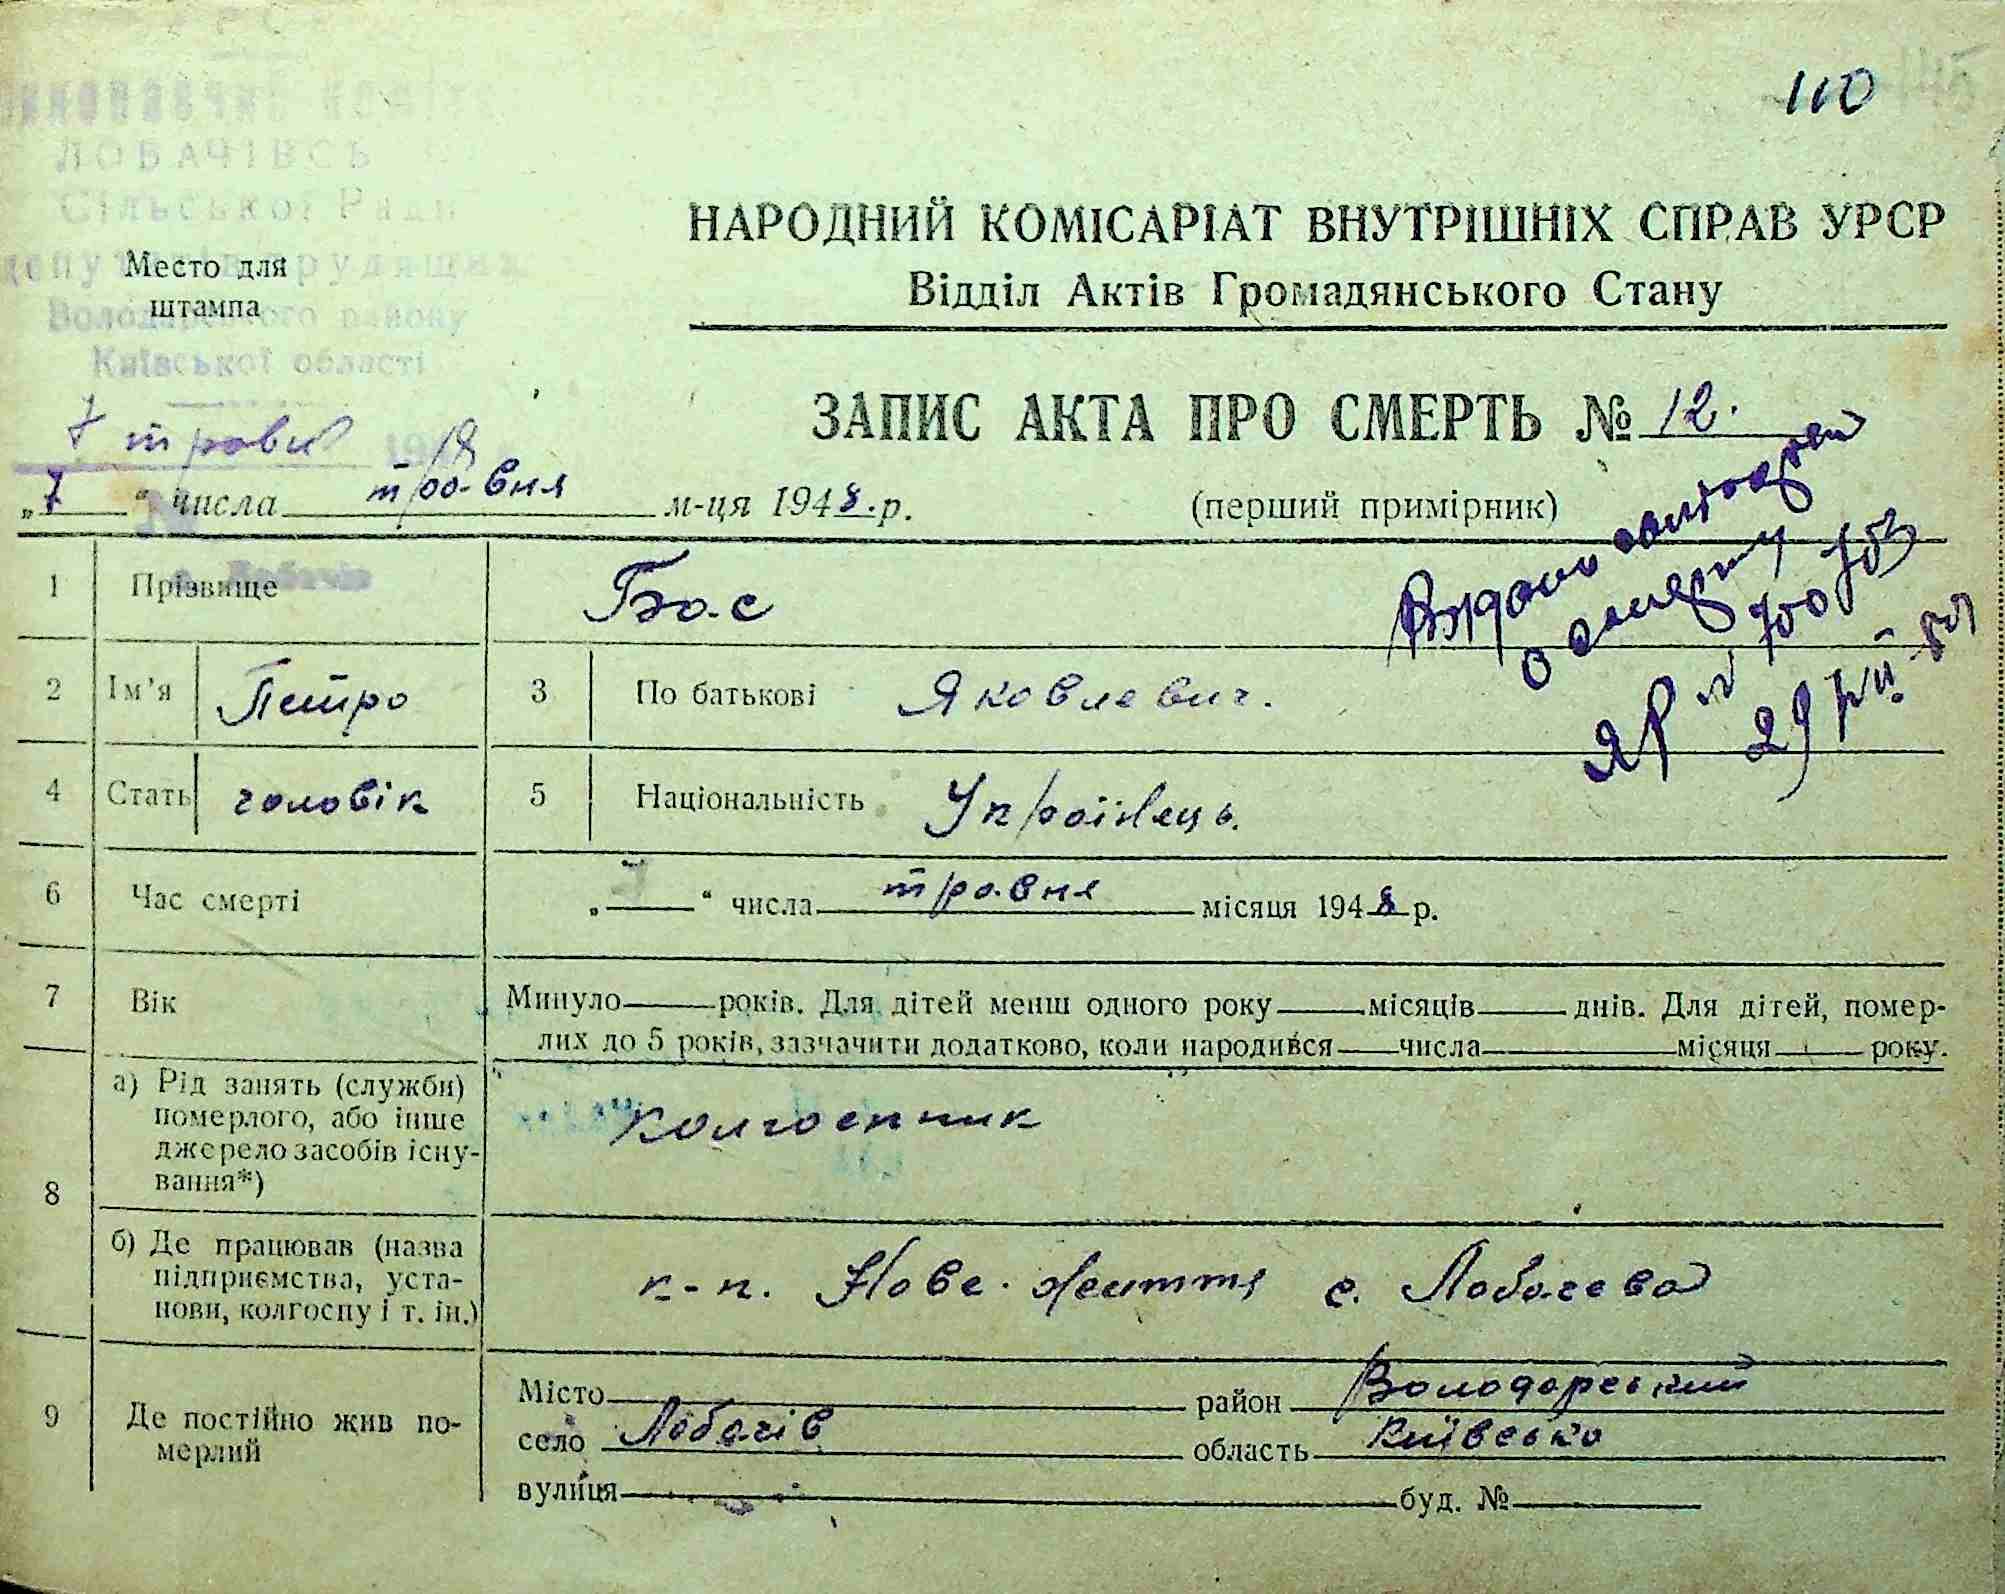 110
ЛОБАЧІВСЬ
Сільської Ради
депутатів трудящих
Володарського району
Київської області
Место для
штампа
НАРОДНИЙ КОМІСАРІАТ ВНУТРІШНІХ СПРАВ УРСР
Відділ Актів Громадянського Стану
ЗАПИС АКТА ПРО СМЕРТЬ № 12.
7 травня 1948
„7“ числа травня м-ця 1948. р.
(перший примірник)
1 Прізвище Бас
2 Ім'я Петро 3 По батькові Яковлевич.
4 Стать чоловік 5 Національність Українець.
6 Час смерті „7“ числа травня місяця 1948 р.
7 Вік Минуло років. Для дітей менш одного року місяців днів. Для дітей, помер-
лих до 5 років, зазначити додатково, коли народився числа місяця року.
8 а) Рід занять (служби)
померлого, або інше
джерело засобів існу-
вання*)
колгоспник
б) Де працював (назва
підприємства, уста-
нови, колгоспу і т. ін.)
к-п. Нове життя с. Лобачева
9 Де постійно жив по-
мерлий
Місто район Володарський
село Лобачів область Київсько
вулиця буд. №
Видано
о смерти
ЯР №
29